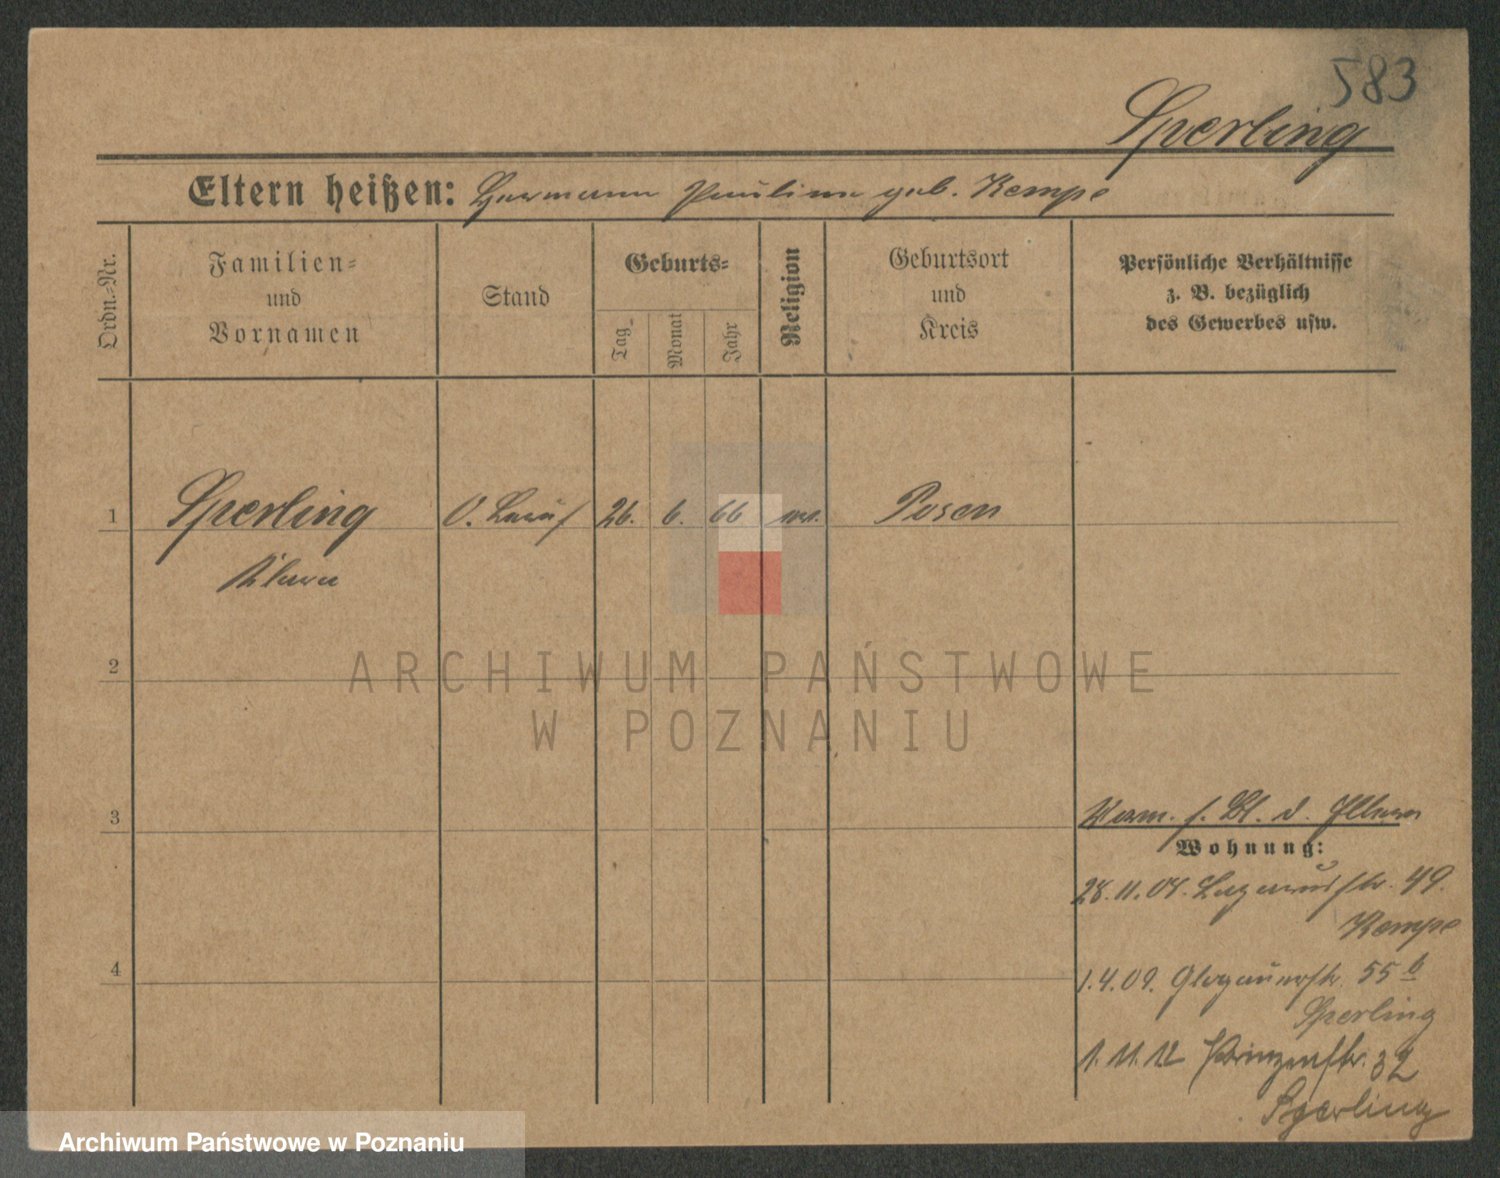 583
Sperling
Eltern heißen: Hermann Pauline geb. Kempe
Ordn.-Nr.
Familien=
und
Vornamen
Stand
Geburts=
Tag
Monat
Jahr
Religion
Geburtsort
und
Kreis
Persönliche Verhältnisse
z. B. bezüglich
des Gewerbes usw.
1 Sperling O. 26. 6. 66 Posen
Klara
2
3
4
Verm. s. Bl. d.
Wohnung:
28.11.08. 49.
Kempe
1.4.09. Glogauerstr. 55 b
Sperling
1.11.12 Prinzenstr. 32
Sperling
ARCHIWUM PAŃSTWOWE
W POZNANIU
Archiwum Państwowe w Poznaniu